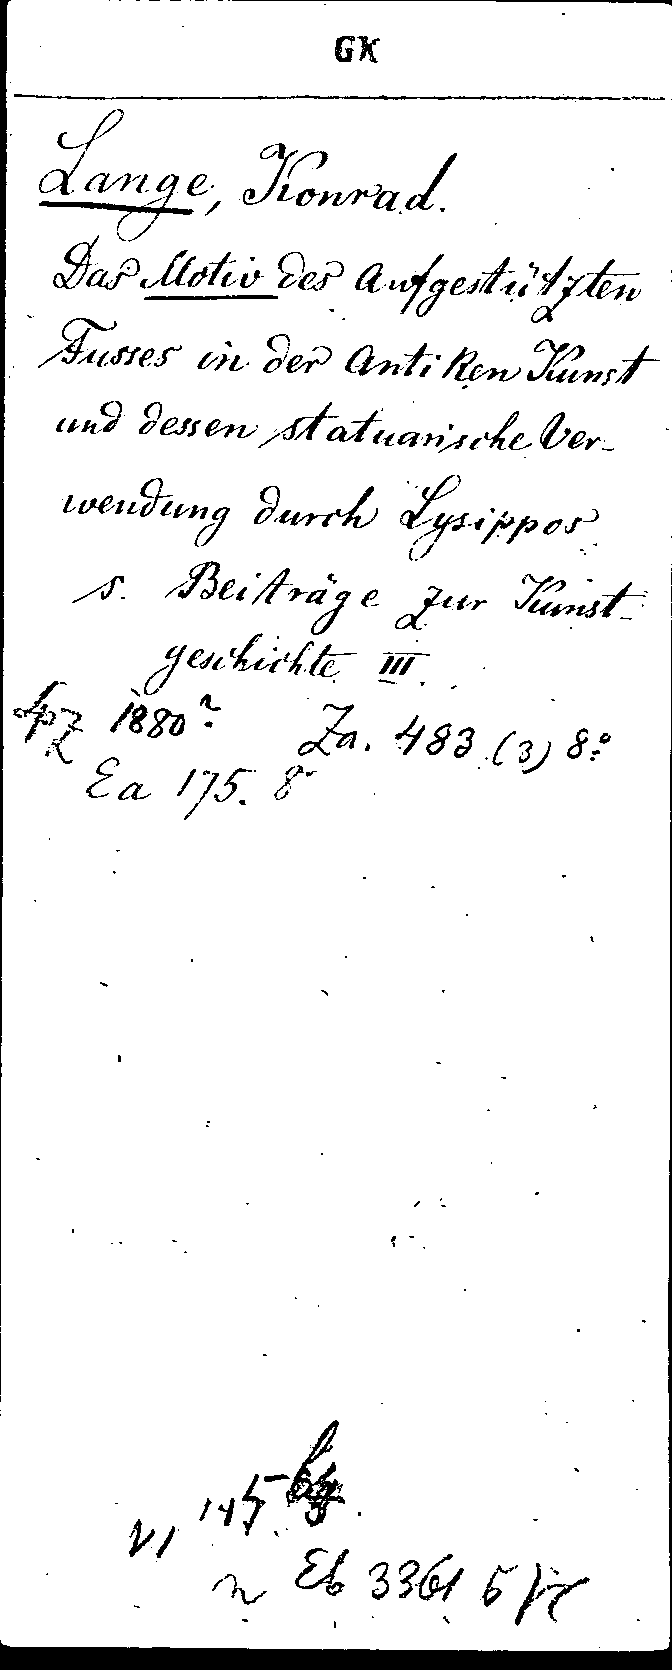 GK
Lange, Konrad.
Das Motiv des aufgestützten
Fusses in der antiken Kunst
und dessen statuarische Ver-
wendung durch Lysippos
s. Beiträge zur Kunst-
geschichte III.
Lpz 1880 Za. 483 (3) 8°
Ea 175. 8°
VI 145
n Eb 3361 5